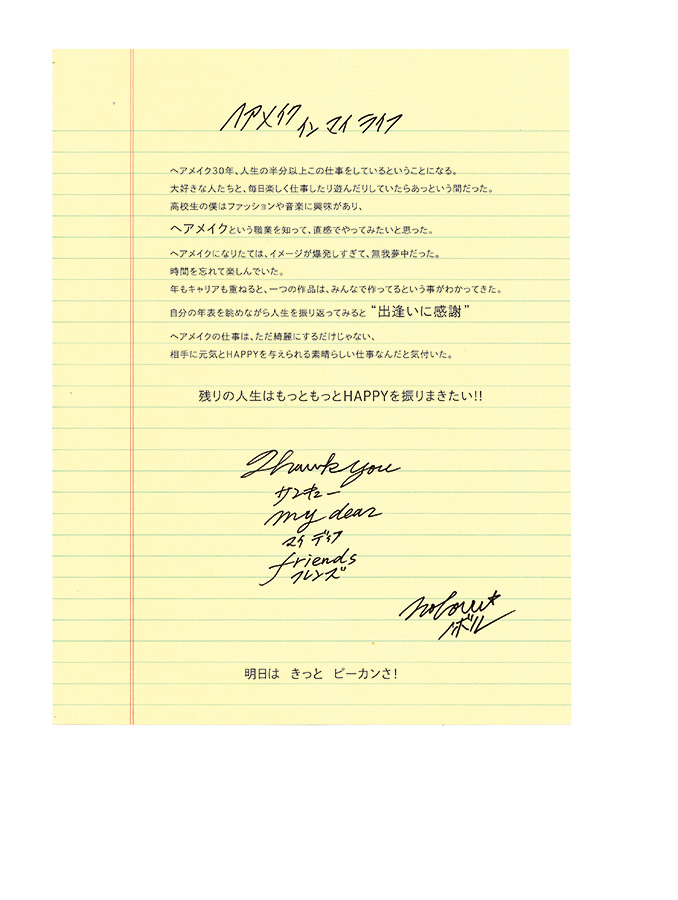 ヘアメイク イン マイ ライフ
ヘアメイク30年、人生の半分以上この仕事をしているということになる。
大好きな人たちと、毎日楽しく仕事したり遊んだりしていたらあっという間だった。
高校生の僕はファッションや音楽に興味があり、
ヘアメイクという職業を知って、直感でやってみたいと思った。
ヘアメイクになりたては、イメージが爆発しすぎて、無我夢中だった。
時間を忘れて楽しんでいた。
年もキャリアも重ねると、一つの作品は、みんなで作ってるという事がわかってきた。
自分の年表を眺めながら人生を振り返ってみると “出逢いに感謝”
ヘアメイクの仕事は、ただ綺麗にするだけじゃない、
相手に元気とHAPPYを与えられる素晴らしい仕事なんだと気付いた。
残りの人生はもっともっとHAPPYを振りまきたい!!
Thank you
サンキュー
my dear
マイ ディア
friends
フレンズ
noboru★
ノボル
明日は きっと ピーカンさ!